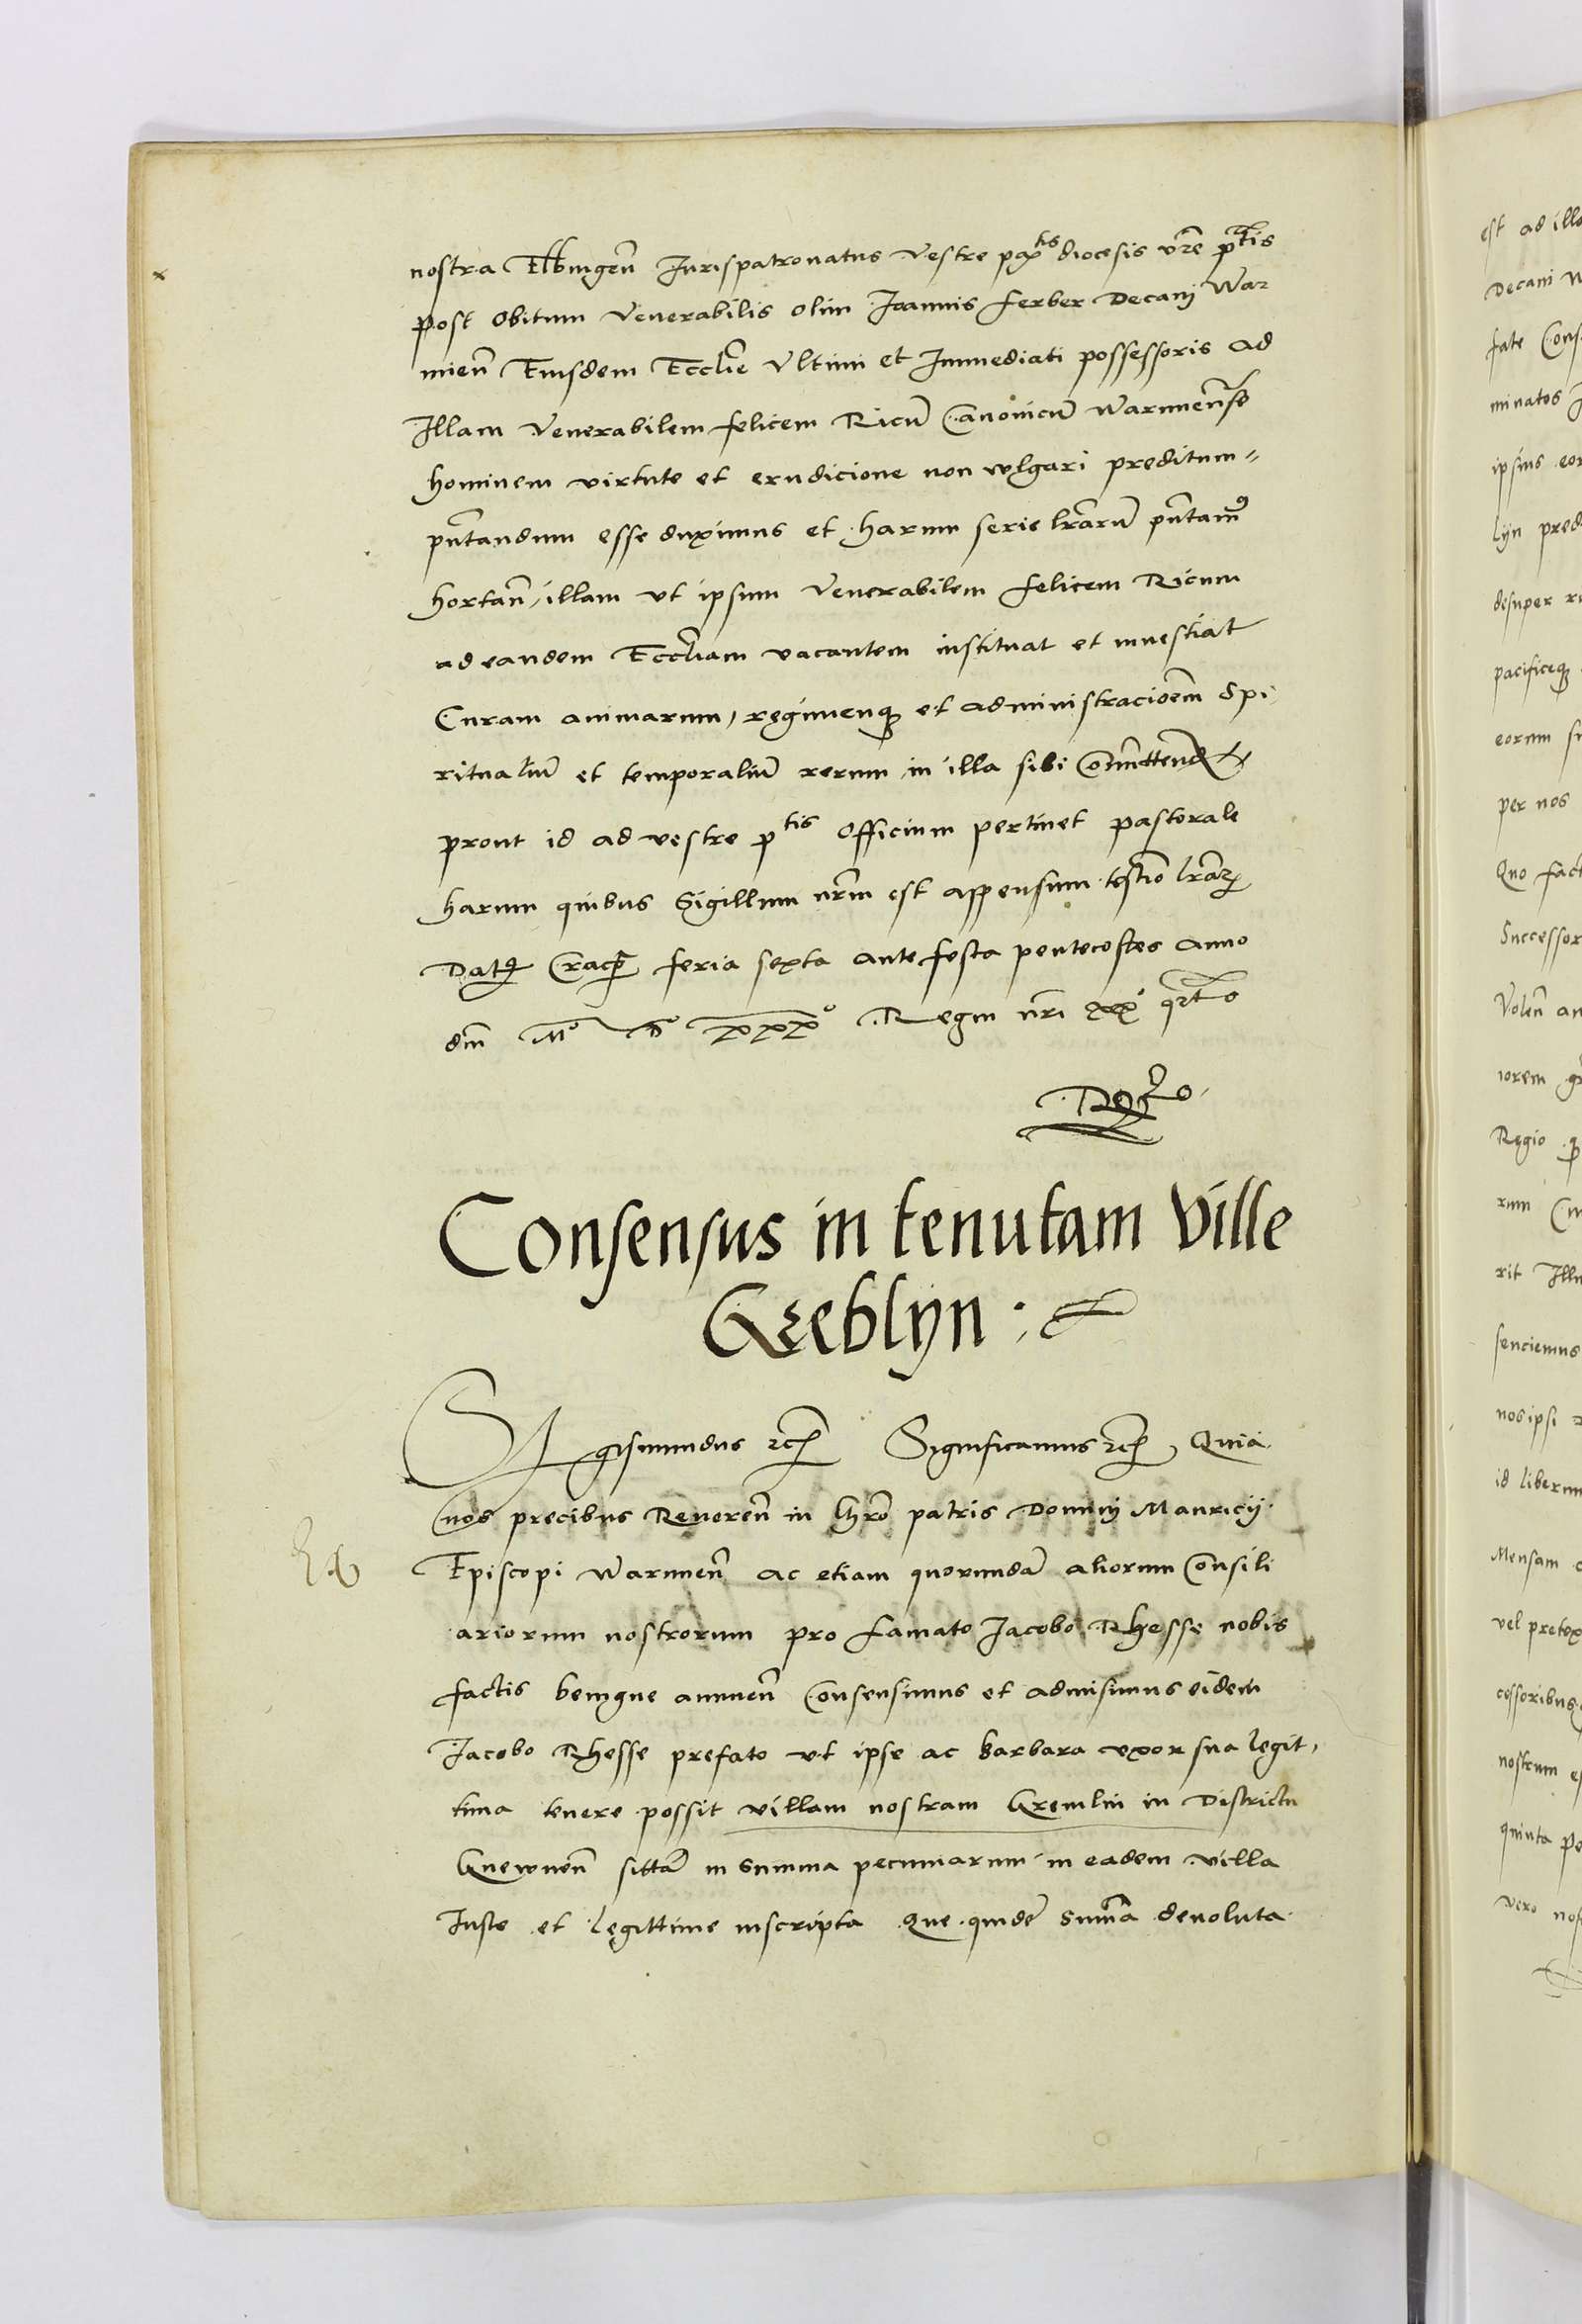 nostra Elbingeñ Jurispatronatus vestre pa^tis diocesis vr̃e p^tis
post obitum Venerabilis olim Joannis ferber Decanj War=
mieñ Eiusdem Eccl̃ie vltimi et Immediati possessoris ad
Illam Venerabilem felicem Ricũ Canonicũ Warmieñse
hominem virtute et erudicione non wlgari preditum=
pñtandum esse duximus et harum serie lr̃arũ pñtamꝰ
hortañ, illam vt ipsum Venerabilem felicem Ricum
ad eandem Eccl̃iam vacantem instituat et inuestiat
Curam animarum, regimenqꝫ et administracioẽm Spi
ritualiũ et temporaliũ rerum in illa sibi Com̃itteñ
prout id ad vestre p^tis officium pertinet pastorale
harum quibus Sigillum nr̃m est appensum testio lr̃arꝫ
Datꝫ Crac̃ feria sexta ante festa pentecostes anno
dñi Mº Dº xxxº Regni nr̃i xx qrto
Consensus in tenutam Ville
Grzeblyn :
Sigismundus rc̃ Significamus rc̃, Quia
nos precibus Revereñ in Chr̃o patris Dominj Mauricij
Episcopi Warmieñ ac etiam quorundã aliorum Consili
ariorum nostrorum pro famato Jacobo Rhesse nobis
factis benigne annueñ Consensimus et admisimus eidem
Jacobo Rhesse prefato vt ipse ac barbara vxor sua legit,
tima tenere possit villam nostram Gremlin in Districtu
Gnewneñ sittã in summa pecuniarum in eadem villa
Juste et legittime inscripta Que quidẽ sum̃a deuoluta
est ad illa
Decani
fate Cons
minatos
ipsius eor
lyn pred
desuper
pacificeqꝫ
eorum
per nos
Quo fact
Successor
Voleñ an
iorem
Regio
rum
rit Illu
senciemus
nos ipsi
id liberum
Mensam
vel pretex
cessoribus
nostrum es
quinta
vero nos